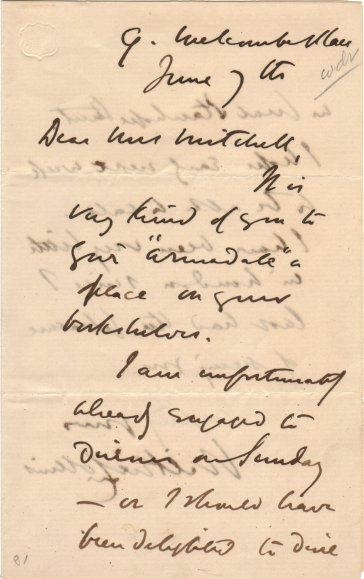 9. Melcombe Place
June 7th
Dear Mrs Mitchell,
It is
very kind of you to
give "Armadale" a
place on your
bookshelves.
I am unfortunately
already engaged to
dinner on Sunday
— or I should have
been delighted to dine
81